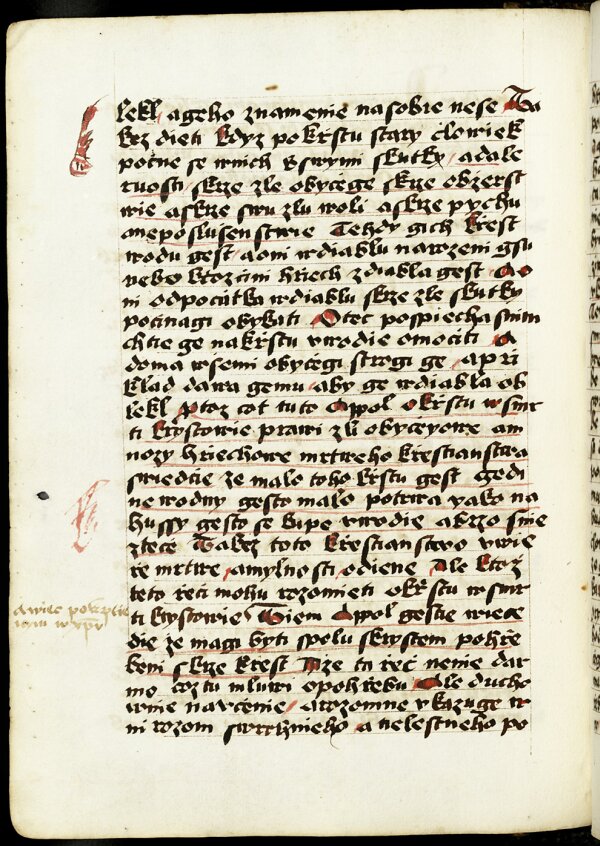 lekl ageho znamenie nasobie nese Ta
kez dieti kdyz pokrstu stary člowiek
počne se wnich s swymi skutky adale
skrze zle obyčege skrze obzerst
wie askrze swu zlu woli askrze pychu
aneposlusenstwie Tehdy gich krest
wodu gest aoni wdiablu narozeni gsu
nebo ktozcini hriech zdiabla gest Ao
ni odpočatka wdiablu skrze zle skutky
počinagi obykati Otec pospiecha snim
chtie ge nakrstu wwodie omočiti A
doma wsemi obyčegi strogi ge apri
klad dawa gemu aby ge wdiabla ob
lekl Ptoz coť tuto Appol Okrstu wsmr
ti krystowie prawi zli obyčeyowe am
nozy hriechowe mrtweho krestianstwa
swiedčie že malo toho krstu gest gedi
ne wodny gesto malo potrwa yako na
hussy gesto se kupe wwodie abrzo snie
zteče Takez toto krestianstwo wwie
re mrtwe amylnosti odiene Ale ktoz
teto reči mohu rozomieti Okrstu wsmr
ti krystowie Tiem Appol gestie wiece
die že magi byti spolu skrystem pohrže
beni skrze krest Nize ta reč nenie dar
mo coz tu mluwi opohrebu Ale ducho
wnie naučenie arozomne ukazuge w
ni rozom swrchnieho a telestneho po
awiec pokrztie